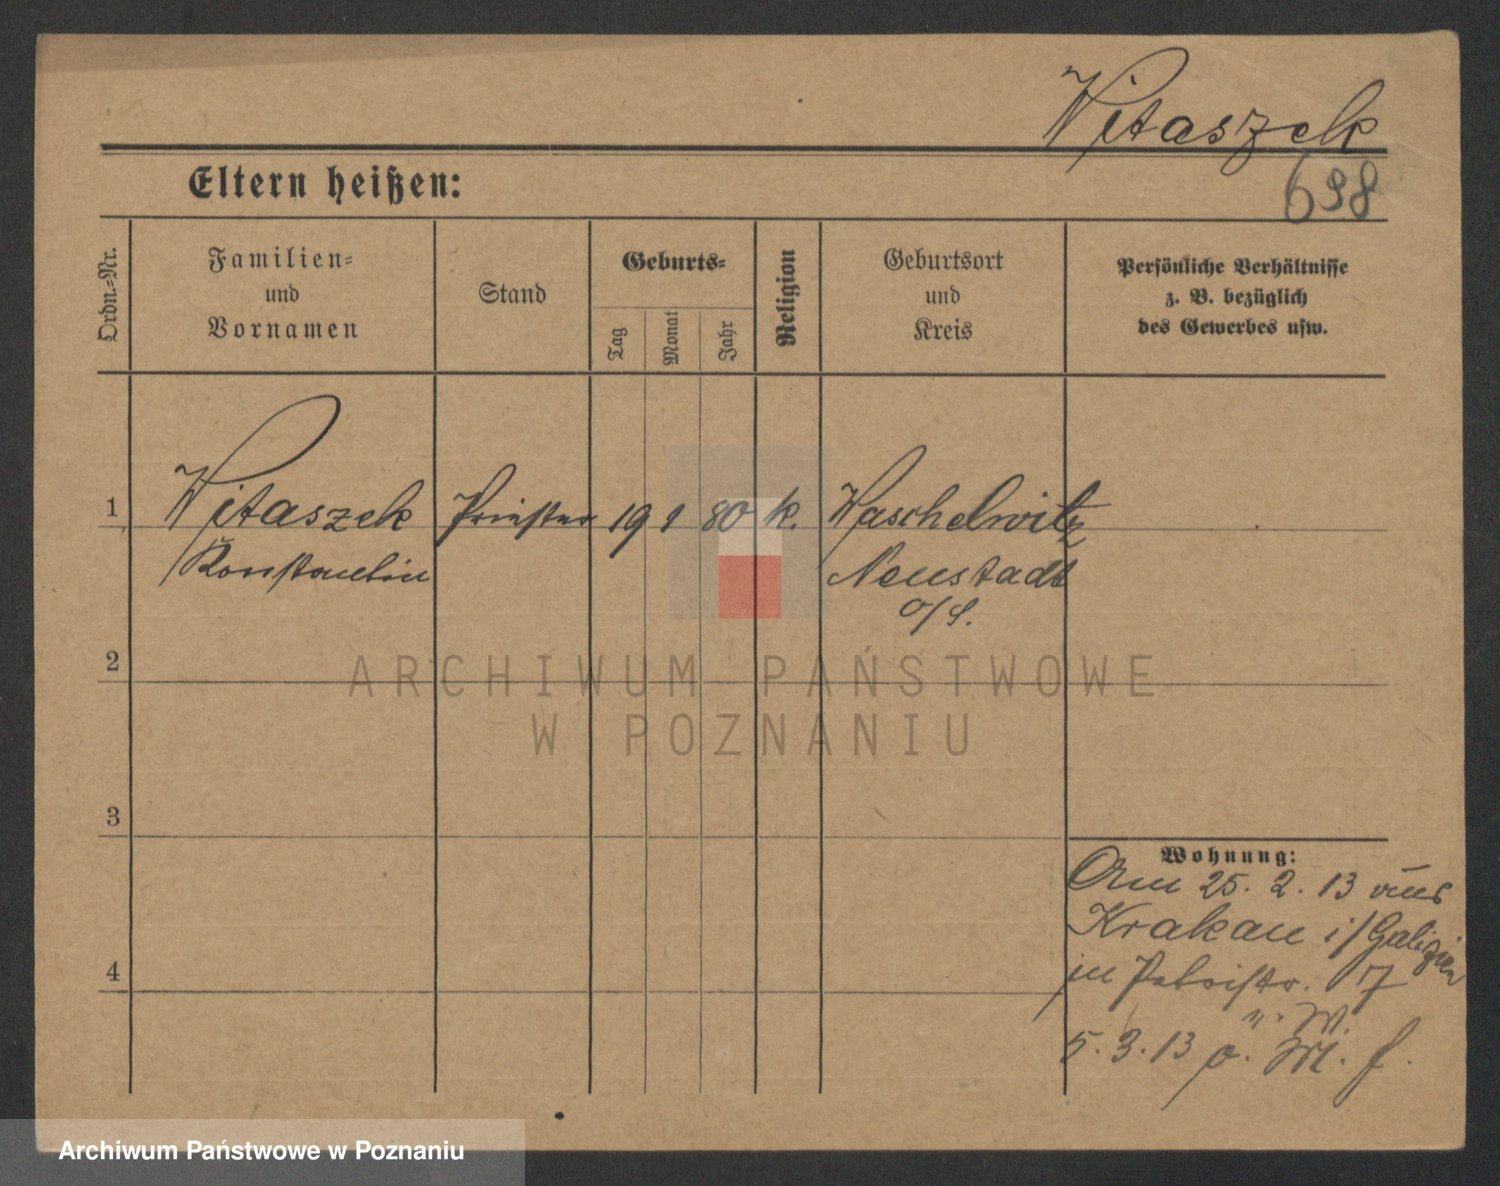 Witaszek
Eltern heißen:
698
Ordn.-Nr.
Familien-
und
Vornamen
Stand
Geburts-
Tag
Monat
Jahr
Religion
Geburtsort
und
Kreis
Persönliche Verhältnisse
z. B. bezüglich
des Gewerbes usw.
1 Witaszek Priester 19 1 80 k. Waschelwitz
Konstantin Neustadt
o/S.
2
ARCHIWUM PAŃSTWOWE
W POZNANIU
3
Wohnung:
Am 25. 2. 13 aus
Krakau i/Galizien
in Petristr. 7
4
5. 3. 13 o.
Archiwum Państwowe w Poznaniu